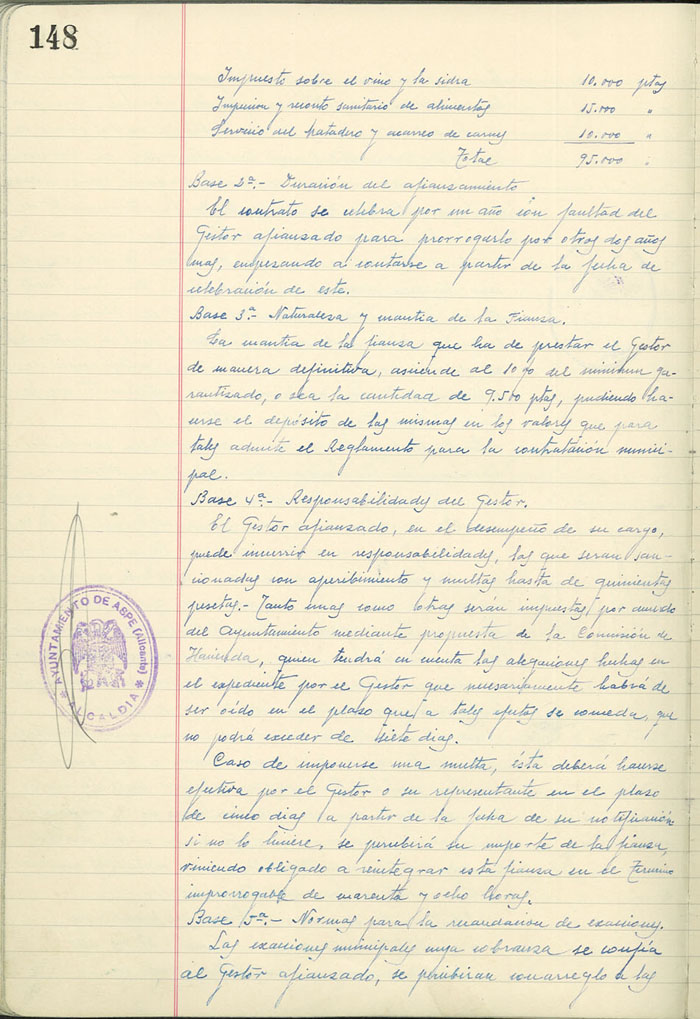 148
Impuesto sobre el vino y la sidra 10.000 ptas
Inspeccion y reconto sanitario de alimentos 15.000 "
Servicio del matadero y acarreo de carnes 10.000 "
Total 95.000 "
Base 2ª.- Duración del afianzamiento
El contrato se celebra por un año con facultad del
Gestor afianzado para prorrogarlo por otros dos años
mas, empezando a contarse a partir de la fecha de
celebración de este.
Base 3ª.- Naturaleza y cuantia de la Fianza.
La cuantia de la fianza que ha de prestar el Gestor
de manera definitiva, asciende al 10% del minimun ga-
rantizado, o sea la cantidad de 9.500 ptas, pudiendo ha-
cerse el depósito de las mismas en los valores que para
tales admite el Reglamento para la contratación munici-
pal.
Base 4ª.- Responsabilidades del Gestor.
El Gestor afianzado, en el desempeño de su cargo,
puede incurrir en responsabilidades, las que seran san-
cionadas con apercibimiento y multas hasta de quinientas
pesetas.- Tanto unas como otras serán impuestas por acuerdo
del Ayuntamiento mediante propuesta de la Comisión de
Hacienda, quien tendrá en cuenta las alegaciones hechas en
el expediente por el Gestor que necesariamente habrá de
ser oído en el plazo que a tales efectos se conceda, que
no podrá exceder de siete dias.
Caso de imponerse una multa, ésta deberá hacerse
efectiva por el Gestor o su representante en el plazo
de cinco dias a partir de la fecha de su notificación
si no lo hiciere, se percibirá su importe de la fianza,
viniendo obligado a reintegrar esta fianza en el termino
improrrogable de cuarenta y ocho horas.
Base 5ª.- Normas para la recaudación de exacciones.
Las exacciones municipales cuya cobranza se confía
al Gestor afianzado, se percibiran con arreglo a las
AYUNTAMIENTO DE ASPE (Alicante)
* ALCALDIA *